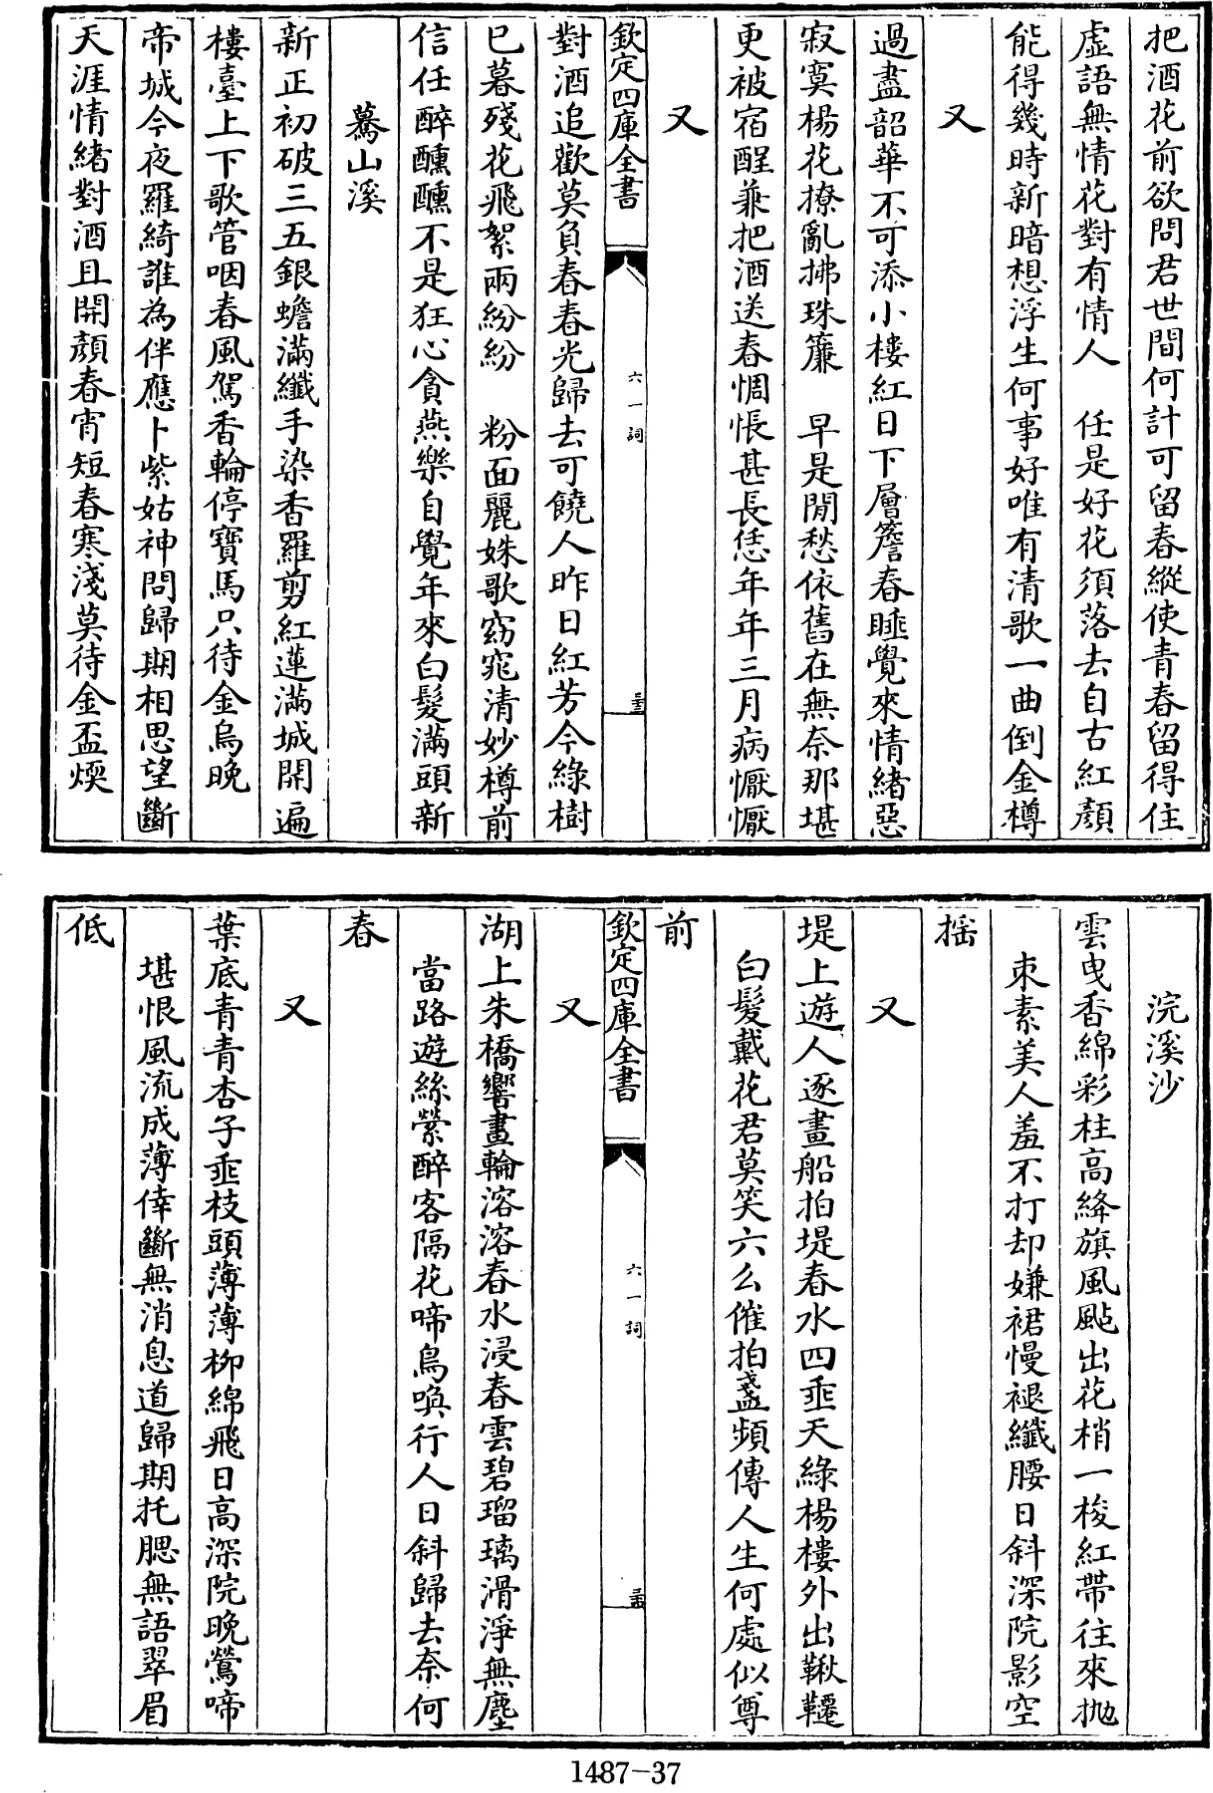 把酒花前欲問君世間何計可留春縱使青春留得住
虛語無情花對有情人　任是好花須落去自古紅顏
能得幾時新暗想浮生何事好唯有清歌一曲倒金樽
又
過盡韶華不可添小樓紅日下層簷春睡覺來情緒惡
寂寞楊花撩亂拂珠簾　早是閒愁依舊在無奈那堪
更被宿酲兼把酒送春惆悵甚長恁年年三月病懨懨
又
欽定四庫全書
六一詞
三十三
對酒追歡莫負春春光歸去可饒人昨日紅芳今綠樹
已暮殘花飛絮兩紛紛　粉面麗姝歌窈窕清妙樽前
信任醉醺醺不是狂心貪燕樂自覺年來白髮滿頭新
驀山溪
新正初破三五銀蟾滿纖手染香羅剪紅蓮滿城開遍
樓臺上下歌管咽春風駕香輪停寶馬只待金烏晚
帝城今夜羅綺誰為伴應卜紫姑神問歸期相思望斷
天涯情緒對酒且開顏春宵短春寒淺莫待金盃煖
浣溪沙
雲曳香綿彩柱高絳旗風颭出花梢一梭紅帶往來拋
束素美人羞不打却嫌裙慢褪纖腰日斜深院影空
搖
又
堤上遊人逐畫船拍堤春水四垂天綠楊樓外出鞦韆
白髮戴花君莫笑六么催拍盞頻傳人生何處似尊
前
欽定四庫全書
六一詞
三十四
又
湖上朱橋響畫輪溶溶春水浸春雲碧瑠璃滑淨無塵
當路遊絲縈醉客隔花啼鳥喚行人日斜歸去奈何
春
又
葉底青青杏子垂枝頭薄薄柳綿飛日高深院晚鶯啼
堪恨風流成薄倖斷無消息道歸期托腮無語翠眉
低
1487-37